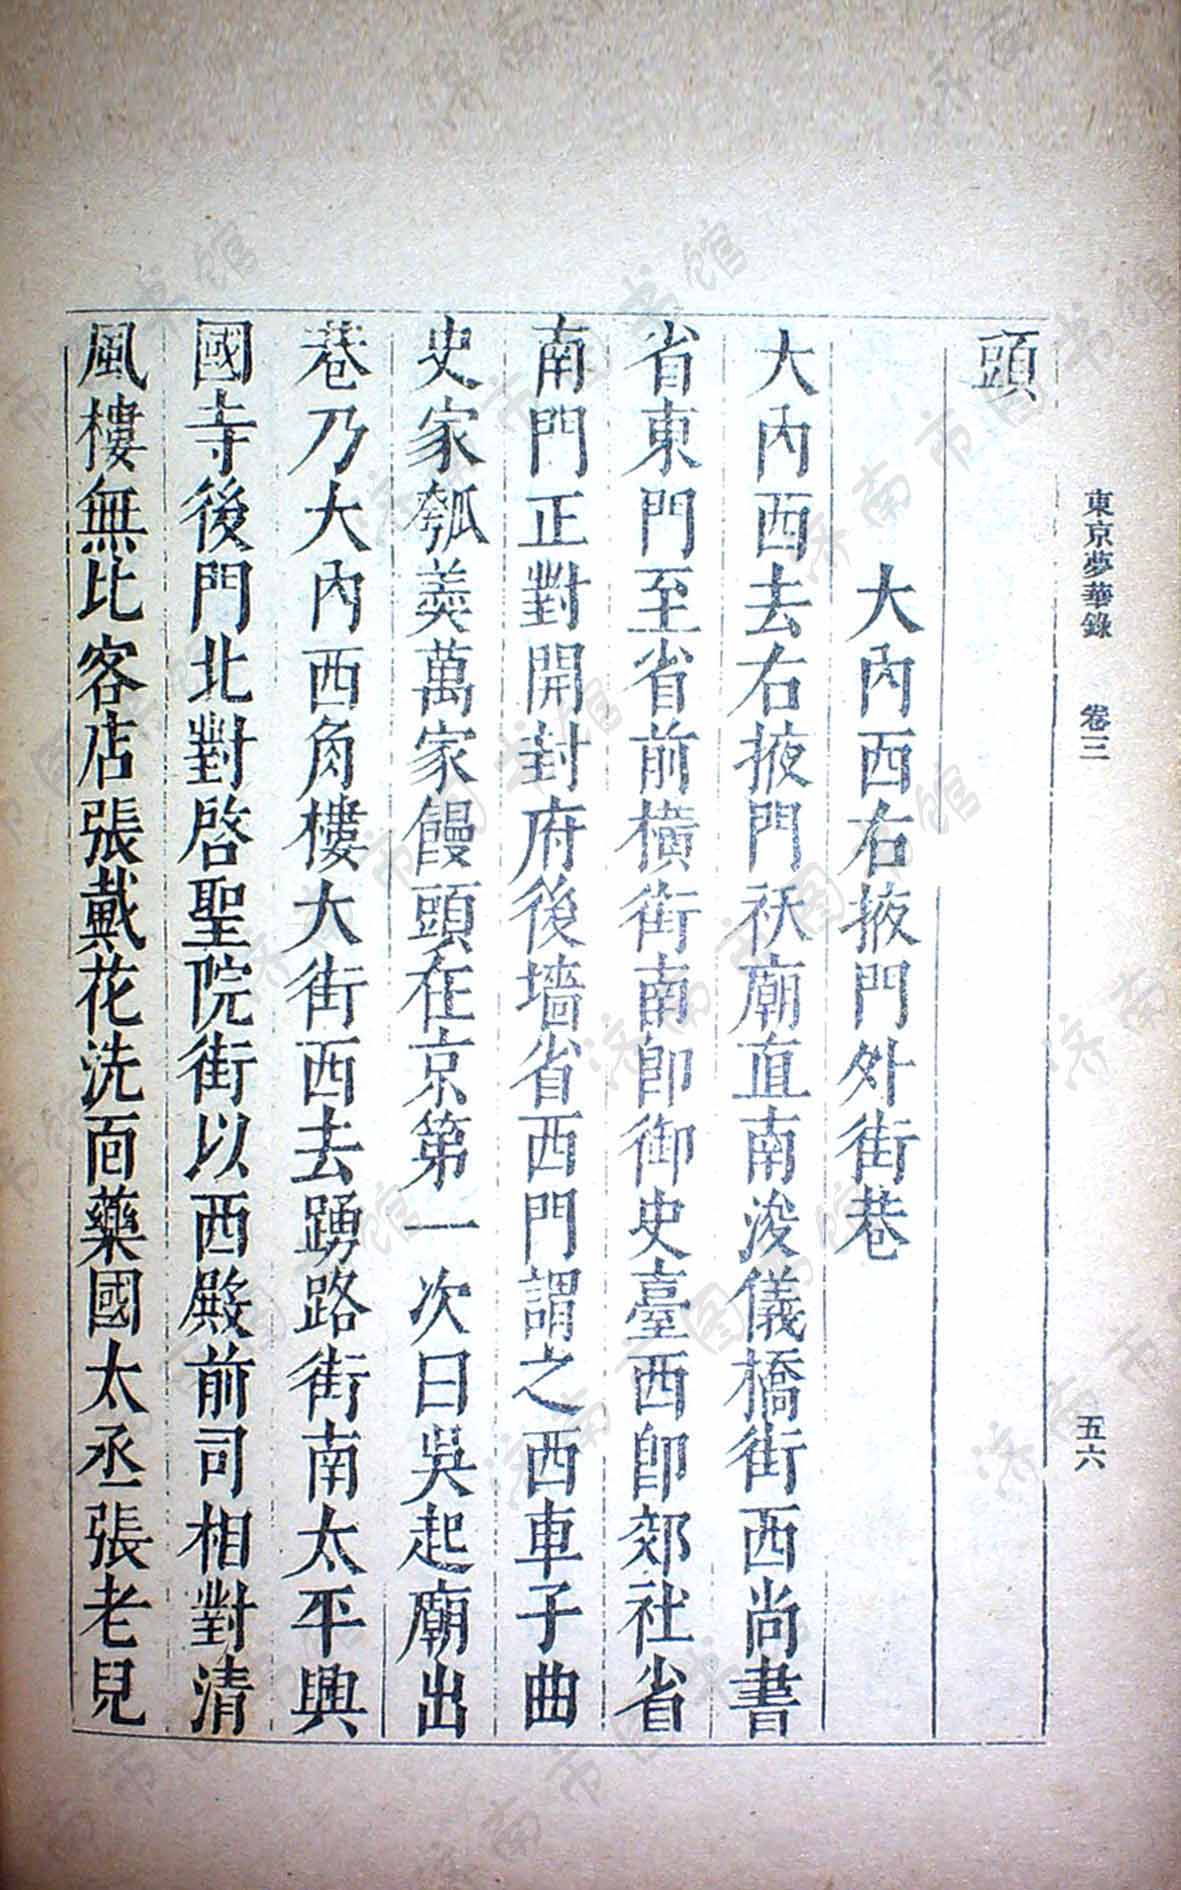 東京夢華錄 卷三 五六
頭
大內西右掖門外街巷
大內西去右掖門祆廟直南浚儀橋街西尚書
省東門至省前橫街南即御史臺西即郊社省
南門正對開封府後墻省西門謂之西車子曲
史家瓠羹萬家饅頭在京第一次曰吳起廟出
巷乃大內西角樓大街西去踴路街南太平興
國寺後門北對啓聖院街以西殿前司相對清
風樓無比客店張戴花洗面藥國太丞張老兒
济南市图书馆